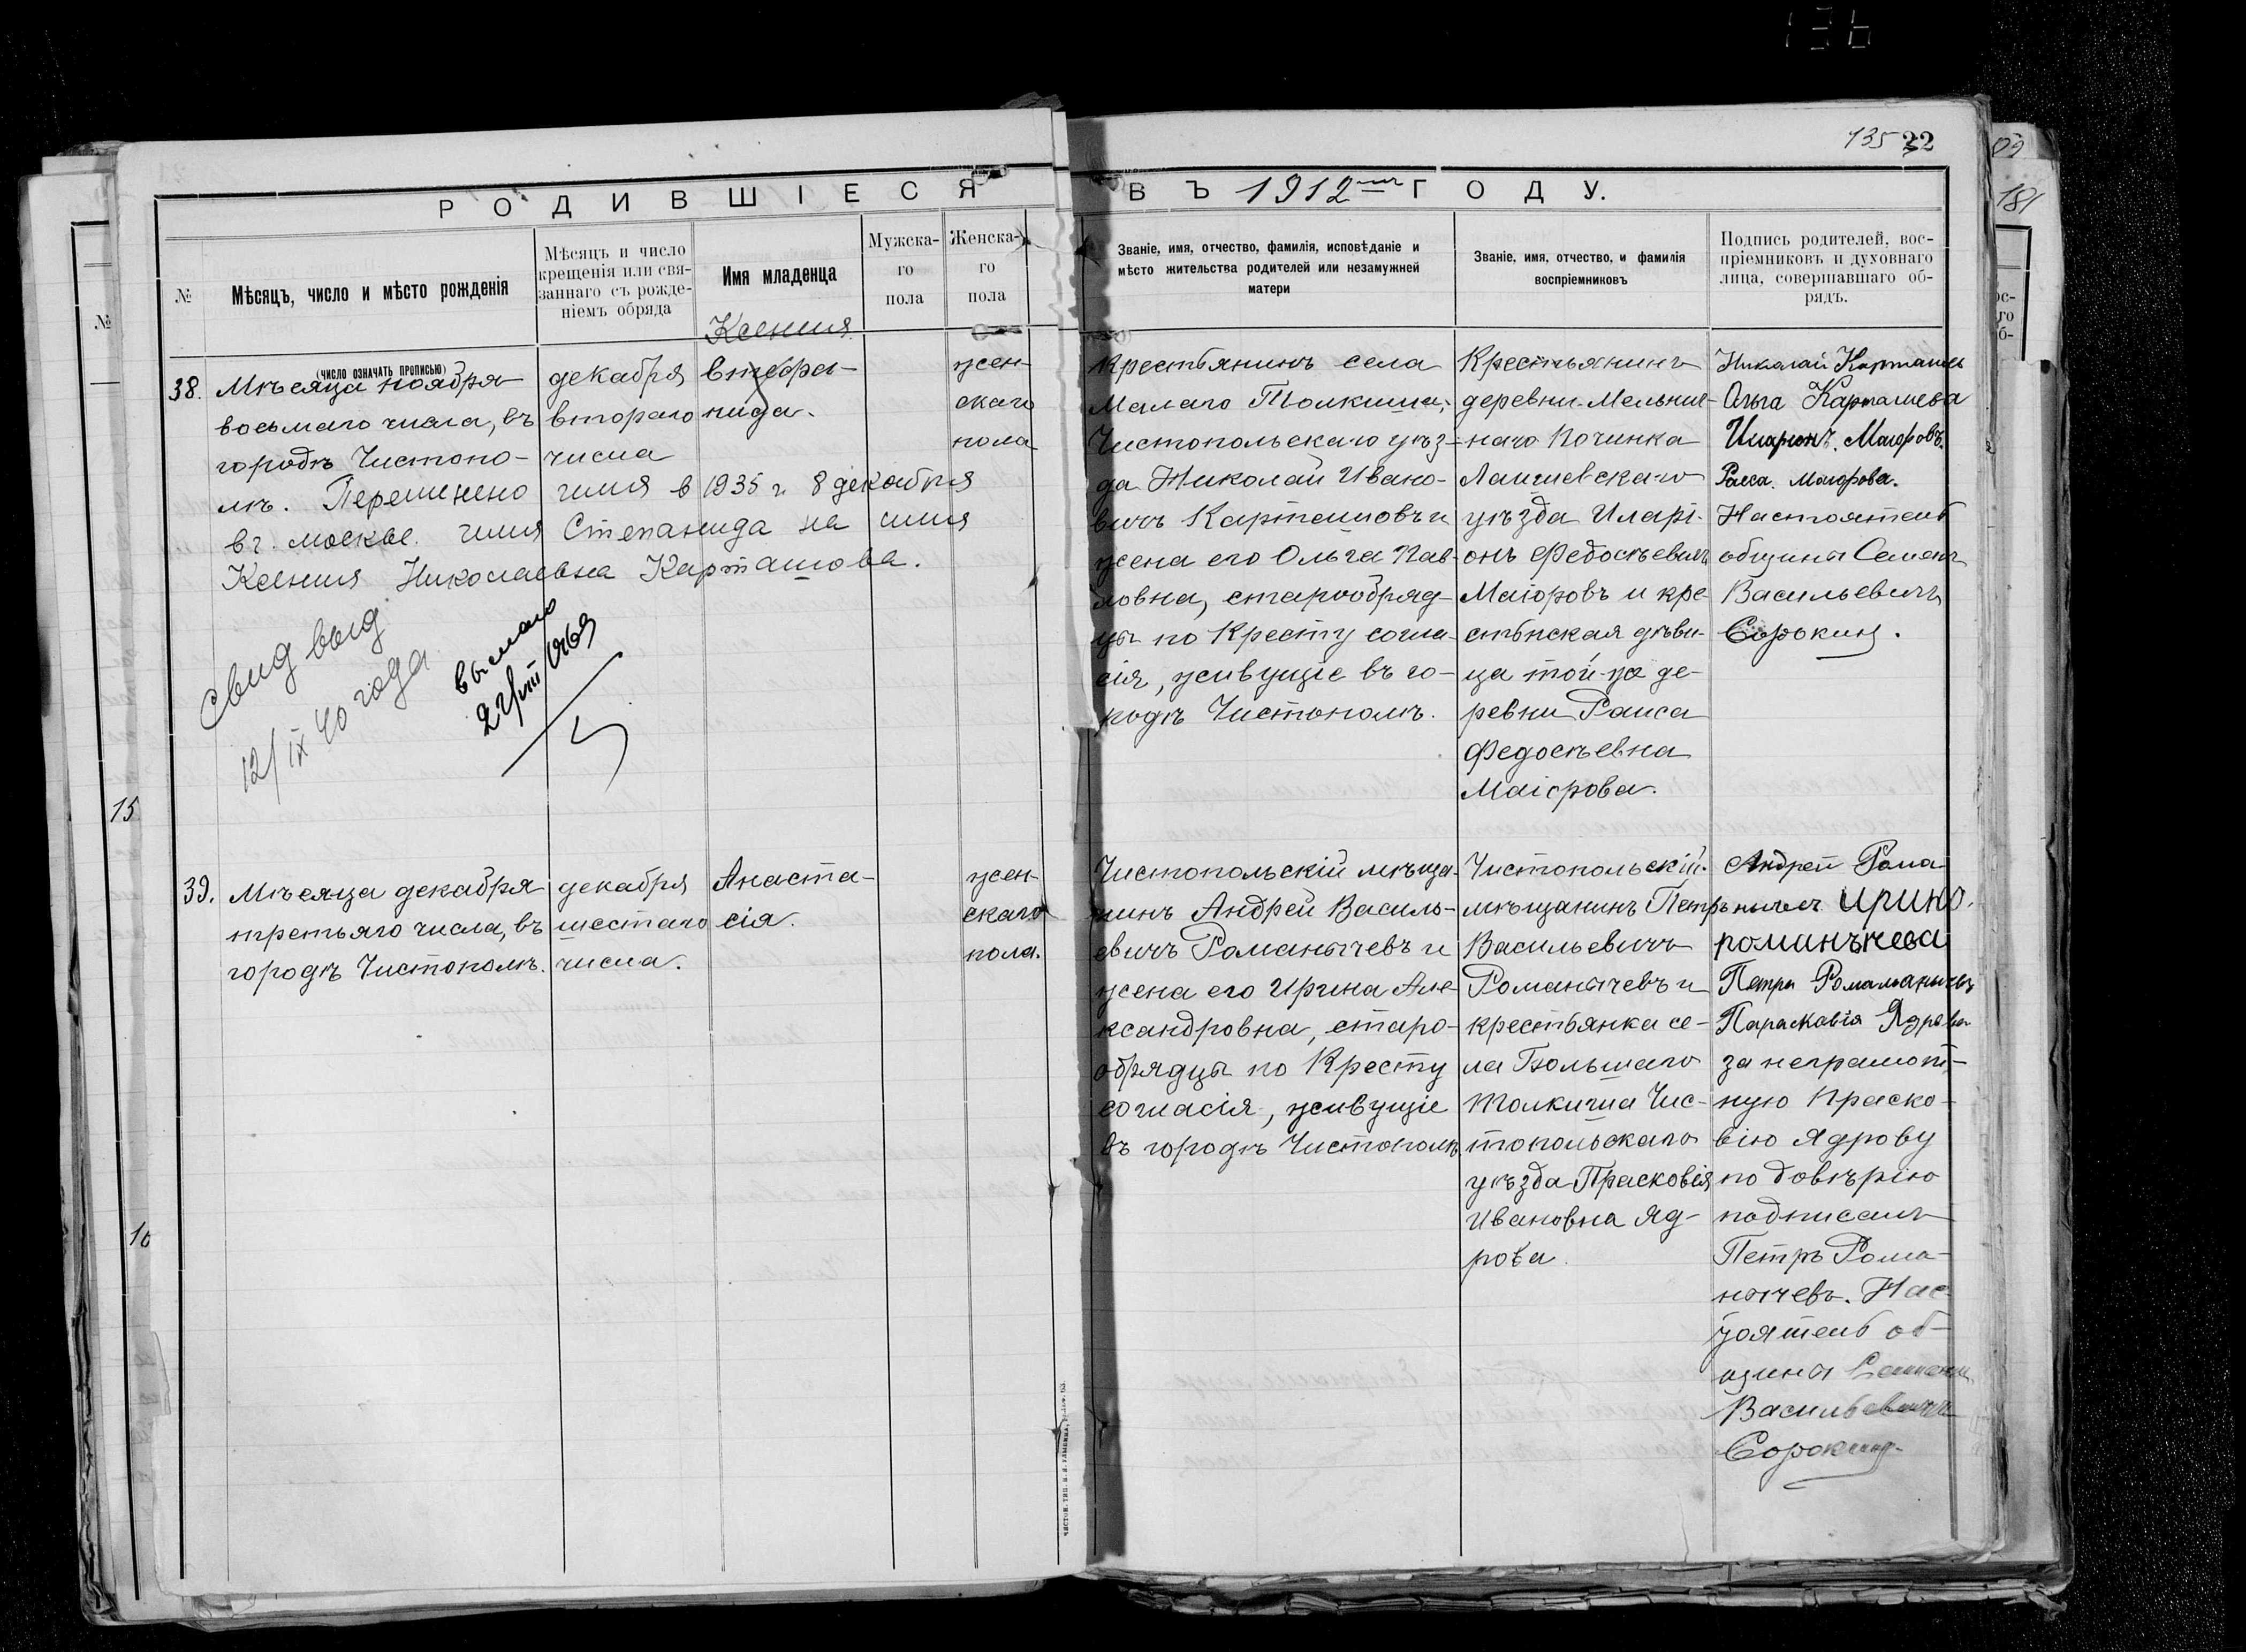 135 22
РОДИВШІЕСЯ
ВЪ 1912 ГОДУ.
№
Мѣсяцъ, число и мѣсто рожденія
(число означать прописью)
Мѣсяцъ и число
крещенія или свя-
заннаго съ рожде-
ніемъ обряда
Имя младенца
Мужска-
го
пола
Женска-
го
пола
Званіе, имя, отчество, фамилія, исповѣданіе и
мѣсто жительства родителей или незамужней
матери
Званіе, имя, отчество, и фамилія
воспріемниковъ
Подпись родителей, вос-
пріемниковъ и духовнаго
лица, совершавшаго об-
рядъ.
38.
Мѣсяца ноября
восьмаго числа, въ
городѣ Чистопо-
лѣ.
декабря
втораго
числа
Ксения
нида.
жен-
скаго
пола
Переменено имя в 1935 г. 8 декабря
в г. москве. имя Степанида на имя
Ксения Николаевна Карташова.
свид выд
12/IX 40 года
выслано
22/VIII 1969
Крестьянинъ села
Малаго Толкиша,
Чистопольскаго уѣз-
да Николай Ивано-
вичъ Карташовъ и
жена его Ольга Пав-
ловна, старообряд-
цы по Кресту согла-
сія, живущіе въ го-
родѣ Чистополѣ.
Крестьянинъ
деревни Мельнич-
наго Починка
Лаишевскаго
уѣзда Иларі-
онъ Федосѣевичъ
Маіоровъ и кре-
стьнская дѣви-
ца той-же де-
ревни Раиса
Федосѣевна
Маіорова.
Николай Карташевъ
Ольга Карташева
Иларионъ Маюровъ.
Раиса Маюрова.
Настоятель
общины Семенъ
Васильевичъ
Сорокинъ.
39.
Мѣсяца декабря
третьяго числа, въ
городѣ Чистополѣ.
декабря
шестаго
числа.
Анаста-
сія.
жен-
скаго
пола.
Чистопольскій мѣща-
нинъ Андрей Василь-
евичъ Романычевъ и
жена его Ирина Але-
ксандровна, старо-
обрядцы по Кресту
согласія, живущіе
въ городѣ Чистополѣ
Чистопольскій
мѣщанинъ Петръ
Васильевичъ
Романычевъ и
крестьянка се-
ла Большаго
Толкиша Чис-
топольскаго
уѣзда Прасковія
Ивановна Яд-
рова.
Андрей Рома-
нычевъ Ирино.
романъчева
Петръ Романычевъ
Парасковія Ядрова
за неграмот-
ную Праско-
вію Ядрову
по довѣрію
подписалъ
Петръ Рома-
нычевъ. Нас-
тоятель об-
щины Семенъ
Васильевичъ
Сорокинъ.
15
16
181